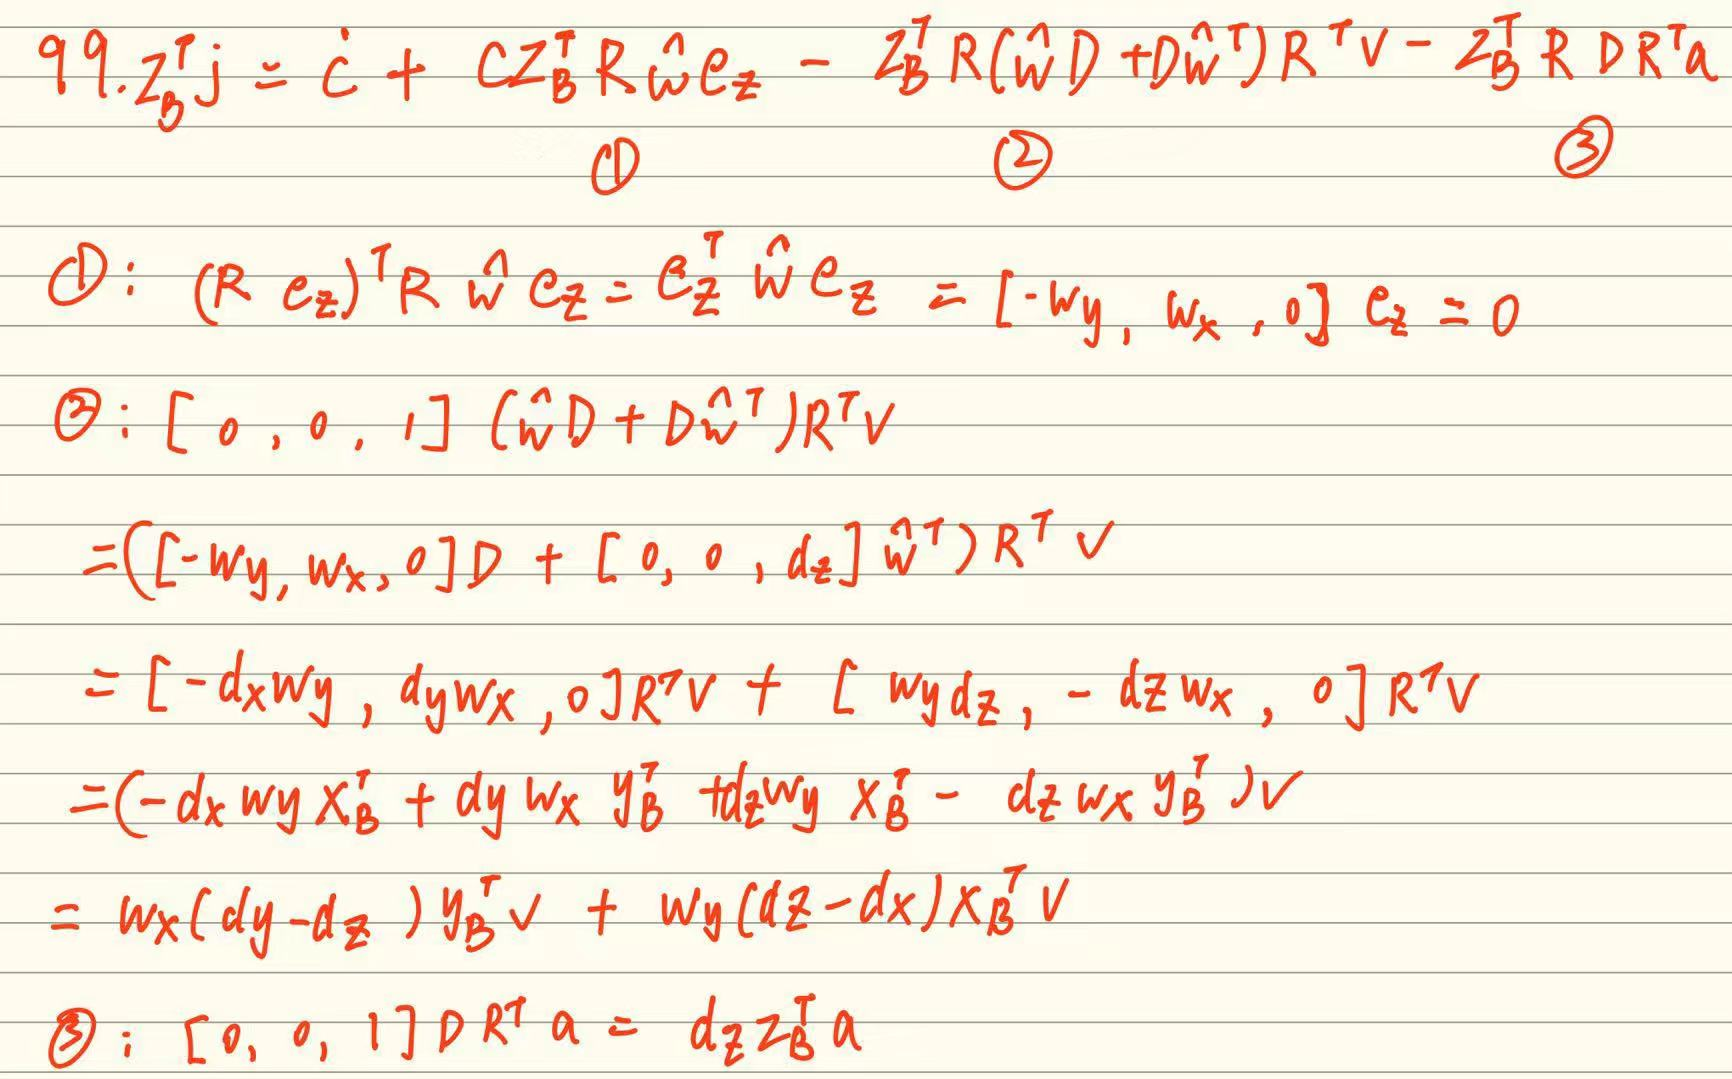 99. Z_B^T j = ċ + C Z_B^T R ŵ e_z - Z_B^T R(ŵ D + D ŵ^T) R^T v - Z_B^T R D R^T a
① ② ③
①: (R e_z)^T R ŵ e_z = e_z^T ŵ e_z = [-w_y, w_x, 0] e_z = 0
②: [0, 0, 1] (ŵ D + D ŵ^T) R^T v
= ([-w_y, w_x, 0] D + [0, 0, d_z] ŵ^T) R^T v
= [-d_x w_y, d_y w_x, 0] R^T v + [w_y d_z, -d_z w_x, 0] R^T v
= (-d_x w_y x_B^T + d_y w_x y_B^T + d_z w_y x_B^T - d_z w_x y_B^T) v
= w_x (d_y - d_z) y_B^T v + w_y (d_z - d_x) x_B^T v
③: [0, 0, 1] D R^T a = d_z z_B^T a